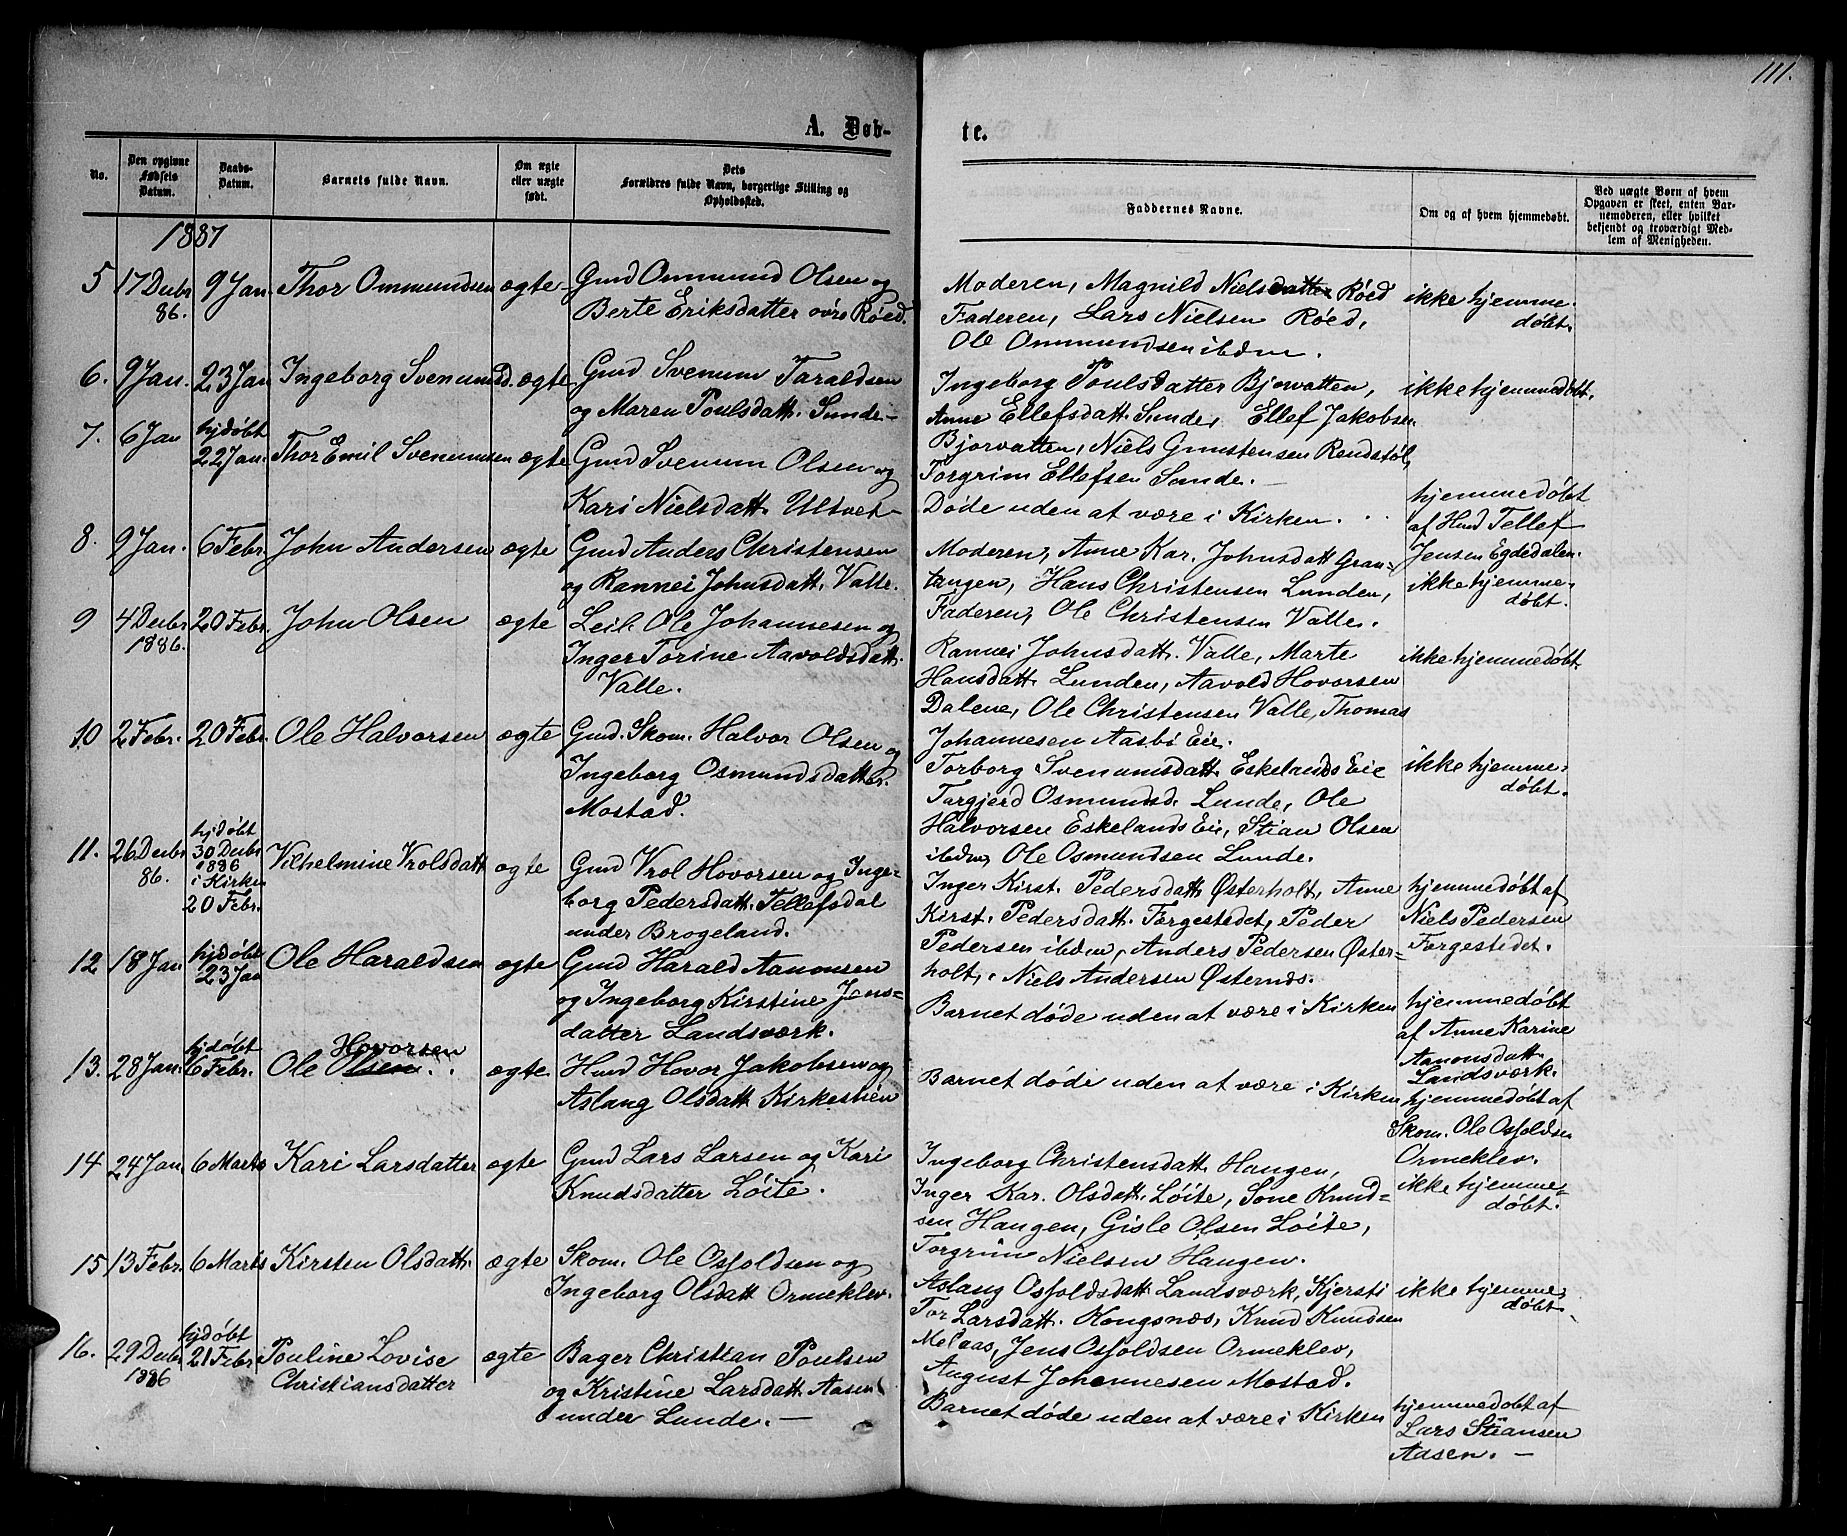 111.
A. Døb-
te.
No.
Den opgivne
Fødsels
Datum.
Daabs-
Datum.
Barnets fulde Navn.
Om ægte
eller uægte
født.
Dets
Forældres fulde Navn, borgerlige Stilling og
Opholdssted.
Faddernes Navne.
Om og af hvem hjemmedøbt.
Ved uægte Børn af hvem
Opgaven er skeet, enten Bar-
nemoderen, eller hvilket
bekjendt og troværdigt Med-
lem af Menigheden.
1887
5 17 Decbr 9 Jan. Thor Ommundsen ægte Gmd Ommund Olsen og
86. Berte Eriksdatter øvre Røed.
Moderen, Magnild Nielsdatter Røed
Faderen, Lars Nielsen Røed,
Ole Ommundsen ibdm.
ikke hjemme-
døbt.
6. 9 Jan. 23 Jan Ingeborg Svenumsd. ægte Gmd Svenum Taraldsen
og Maren Poulsdatt. Sunde
Ingeborg Poulsdatter Bjorvatten,
Anne Ellefsdatt. Sunde, Ellef Jakobsen
Bjorvatten, Niels Gunstensen Rendstøl,
Torgrim Ellefsen Sunde.
ikke hjemmedøbt.
7. 6 Jan hjdøbt
22 Jan. Thor Emil Svenumsen ægte Gmd Svenum Olsen og
Kari Nielsdatt. Ultvet
Døde uden at være i Kirken.
hjemmedøbt
af Hmd Tellef
Jensen Egdedalen.
8. 9 Jan. 6 Febr John Andersen ægte Gmd Anders Christensen
og Rannei Johnsdatt. Valle.
Moderen, Anne Kar. Johnsdatt Gran-
tangen, Hans Christensen Lunden,
Faderen, Ole Christensen Valle.
ikke hjemme-
døbt.
9 4 Decbr 20 Febr. John Olsen ægte Leil. Ole Johannesen og
1886. Inger Torine Aavoldsdatt.
Valle.
Rannei Johnsdatt. Valle, Marte
Hansdatt. Lunden, Aavold Hovorsen
Dalene, Ole Christensen Valle, Thomas
Johannesen Aasbø Eie.
ikke hjemmedøbt.
10 2 Febr. 20 Febr. Ole Halvorsen ægte Gmd. Skom. Halvor Olsen og
Ingeborg Osmundsdatter
Mostad.
Torborg Svenumsdatt. Eskelands Eie
Torgjerd Osmundsd. Lunde, Ole
Halvorsen Eskelands Eie, Stian Olsen
ibdm, Ole Osmundsen Lunde.
ikke hjemme-
døbt.
11. 26 Decbr
86.
hjdøbt
30 Decbr
1886
i Kirken
20 Febr.
Vilhelmine Vrolsdatt ægte Gmd Vrol Hovorsen og Inge-
borg Pedersdatt. Tellefsdal
under Brogeland.
Inger Kirst. Pedersdatt. Østerholt, Anne
Kirst. Pedersdatt. Forgestedet, Peder
Pedersen ibdm, Anders Pedersen Øster-
holt, Niels Andersen Østernes.
hjemmedøbt af
Niels Pedersen
Forgestedet.
12 18 Jan hjdøbt
23 Jan Ole Haraldsen ægte Gmd Harald Aanonsen
og Ingeborg Kirstine Jens-
datter Landsværk.
Barnet døde uden at være i Kirken
hjemmedøbt
af Anne Karine
Aanonsdatt.
Landsværk.
13. 28 Jan. hjdøbt
6 Febr. Ole Olsen Hovorsen ægte Hmd Hovor Jakobsen og
Aslaug Olsdatt Kirkestien
Barnet døde uden at være i Kirken
hjemmedøbt af
Skom. Ole Osfoldsen
Ormeklev.
14 24 Jan 6 Marts Kari Larsdatter ægte Gmd Lars Larsen og Kari
Knudsdatter Løite.
Ingeborg Christensdatt. Haugen,
Inger Kar. Olsdatt. Løite, Sone Knud-
sen Haugen, Gisle Olsen Løite,
Torgrim Nielsen Haugen.
ikke hjemme-
døbt.
15 13 Febr. 6 Marts Kirsten Olsdatt. ægte Skom. Ole Osfoldsen og
Ingeborg Olsdatt Ormeklev.
Aslaug Osfoldsdatt. Landsværk, Kjersti
Tor Larsdatt. Kongsnæs, Knud Knudsen
Melaas, Jens Osfoldsen Ormeklev,
August Johannesen Mostad.
ikke hjemme-
døbt.
16. 29 Decbr
1886
hjdøbt
21 Febr. Pouline Lovise
Christiansdatter
ægte Bager Christian Poulsen
og Kristine Larsdatt. Aasen
under Lunde.
Barnet døde uden at være i Kirken
hjemmedøbt af
Lars Stiansen
Aasen.